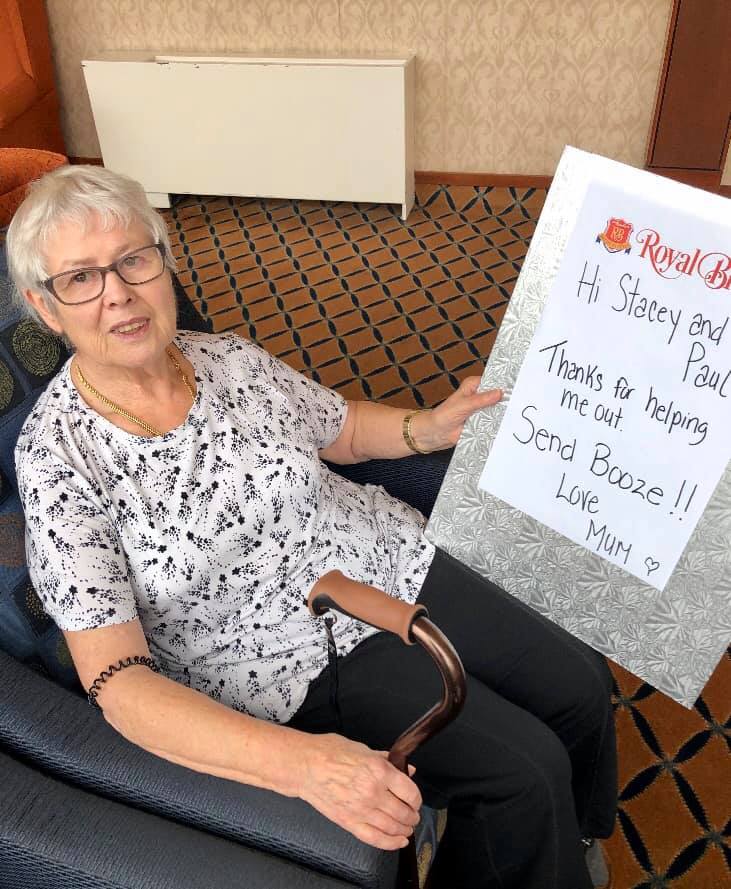 Royal B
Hi Stacey and
Paul
Thanks for helping
me out.
Send Booze!!
Love
Mum ♡